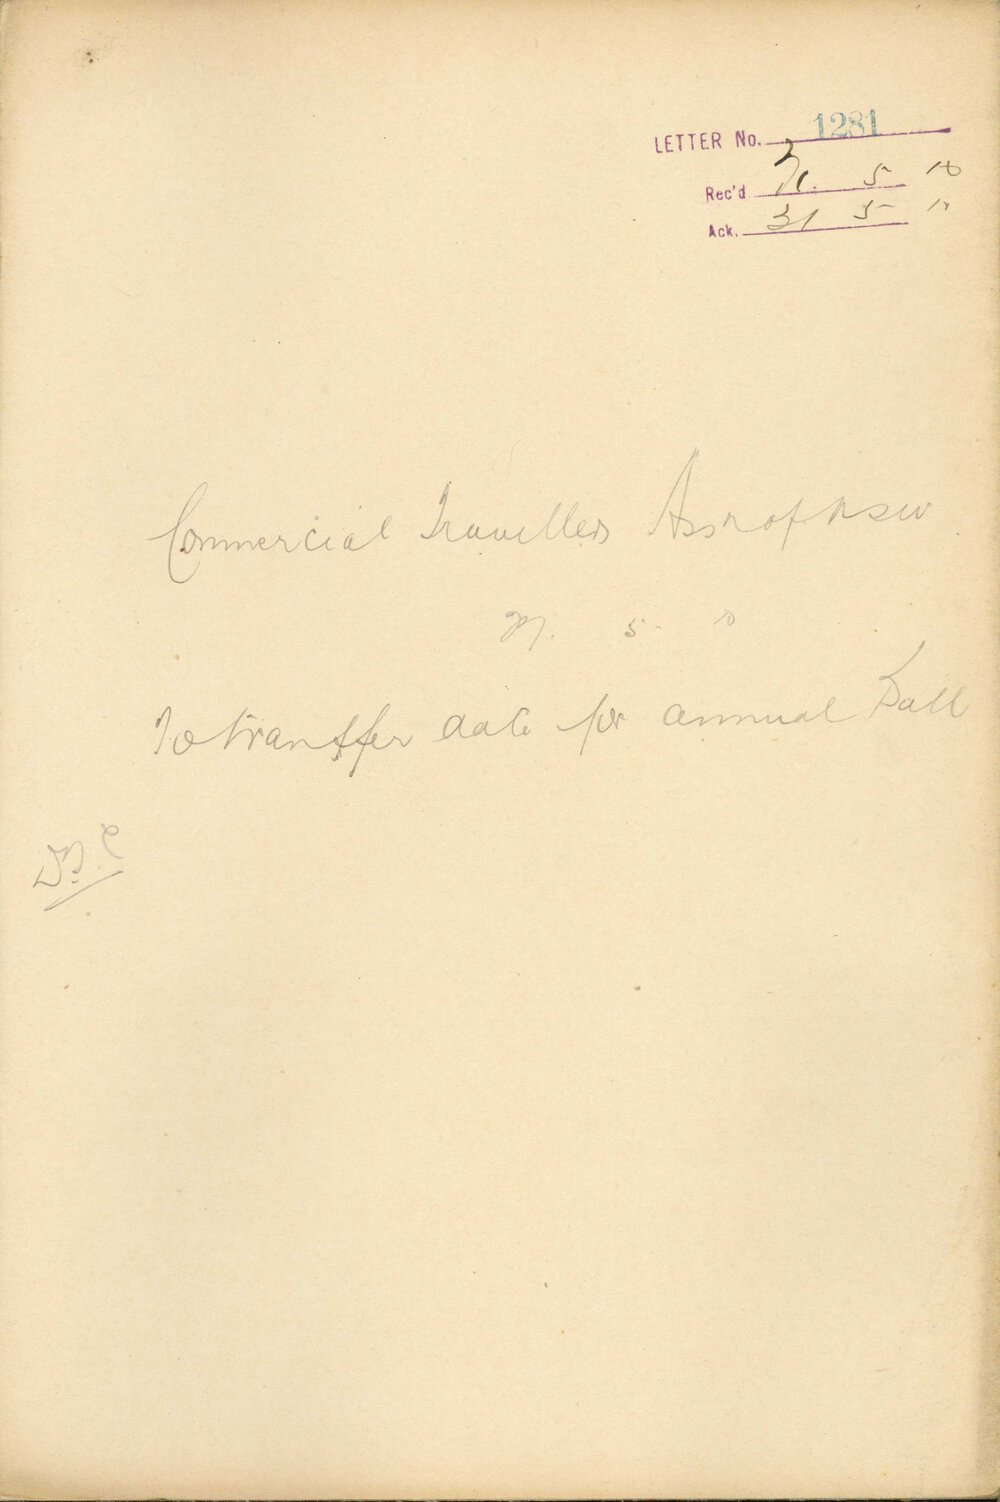 LETTER No. 1281
Rec'd 31. 5 10
Ack. 31 5 10
Commercial Travellers Assn of NSW
5
To transfer date for annual Ball